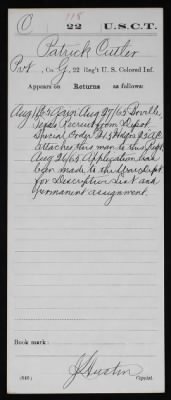 C 118 22 U.S.C.T.
Patrick Cutler
Pvt, Co. G, 22 Reg't U. S. Colored Inf.
Appears on Returns as follows:
Aug 1865 Aug 27/65
Texas Recruit from Depot.
Special Order 25 A.C.
attaches this man to this Regt.
Aug 26/65 Application has
been made to the
for Descriptive List and
permanent assignment.
Book mark:
(546) J Hustin Copyist.